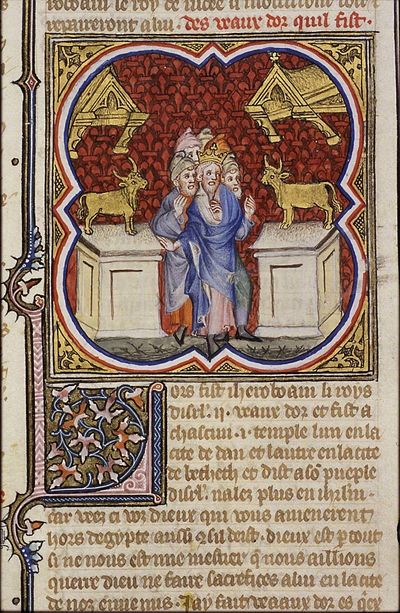 roboam le roy de iudee
repaireront a lui. des veaux dor quil fist.
Lors fist iheroboam li roys
disrl'. ii. veaux dor et fist a
chascun .i. temple lun en la
cite de dan et lautre en la cite
de betheth et dist a so pueple
disrl'. nalez plus en ihrlm.
car veez ci voz dieux qui vous amenerent
hors degypte aussi
si ne nous est mie mestier q nous aillions
querre dieu ne faire sacrefices a lui en la cite
de noz ennemis. Jay fait veaux dor es qex